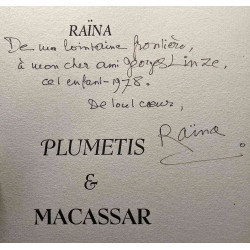 RAÏNA
De ma lointaine frontière,
à mon cher ami Georges Linze,
cet enfant - 1978.
De tout cœur,
Raïna
PLUMETIS
&
MACASSAR